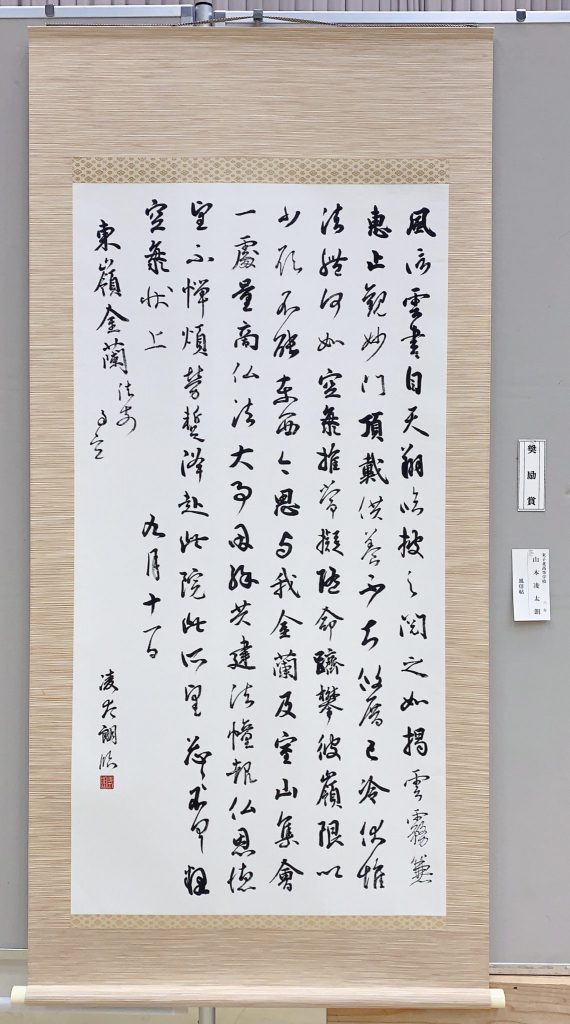 風信雲書自天翔臨披之閲之如揭雲霧兼
恵止観妙門頂戴供養不知攸厝已冷伏惟
法體何如空海推常擬隨命躋攀彼嶺限以
少願不能東西今思与我金蘭及室山集會
一處量商仏法大事因縁共建法幢報仏恩徳
望不憚煩勞蹔降赴此院此所望
空海状上 九月十一日
東嶺金蘭法前
謹空
凌太朗臨
奨励賞
山本凌太朗
風信帖